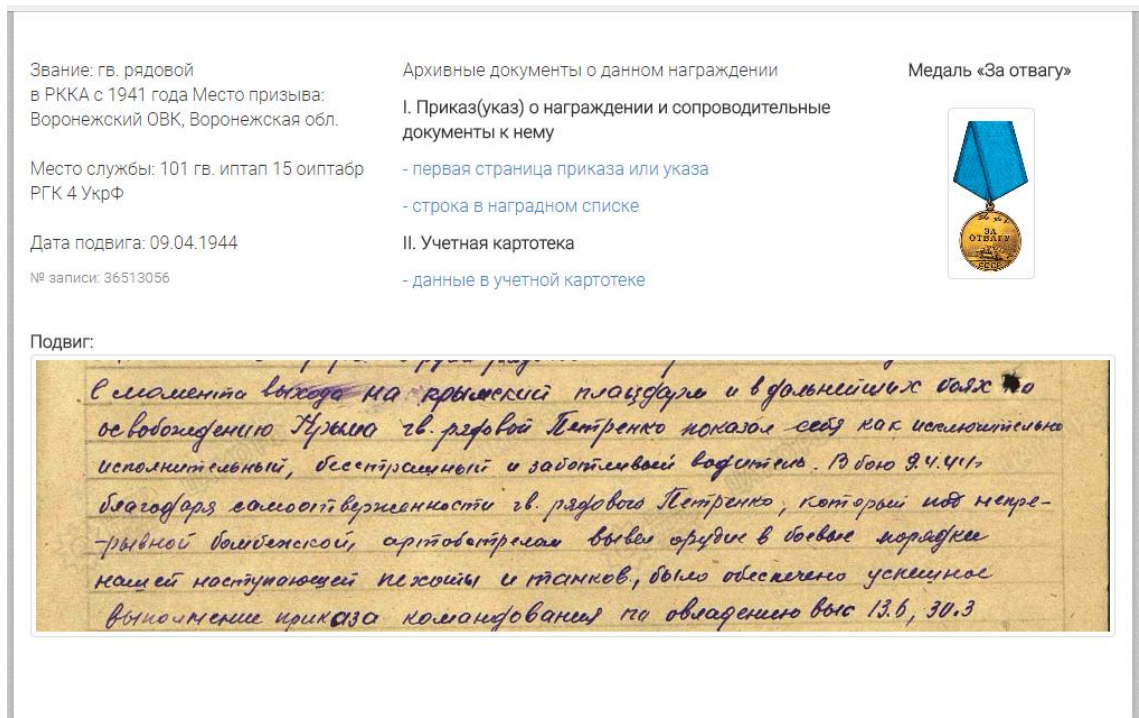 Звание: гв. рядовой
в РККА с 1941 года Место призыва:
Воронежский ОВК, Воронежская обл.
Место службы: 101 гв. иптап 15 оиптабр
РГК 4 УкрФ
Дата подвига: 09.04.1944
№ записи: 36513056
Архивные документы о данном награждении
I. Приказ(указ) о награждении и сопроводительные
документы к нему
- первая страница приказа или указа
- строка в наградном списке
II. Учетная картотека
- данные в учетной картотеке
Медаль «За отвагу»
ЗА
ОТВАГУ
СССР
Подвиг:
С момента выхода на крымский плацдарм и в дальнейших боях по
освобождению Крыма гв. рядовой Петренко показал себя как исключительно
исполнительный, бесстрашный и заботливый водитель. В бою 9.4.44г
благодаря самоотверженности гв. рядового Петренко, который под непре-
-рывной бомбежкой, артобстрелом вывел орудие в боевые порядки
нашей наступающей пехоты и танков, было обеспечено успешное
выполнение приказа командования по овладению выс 13.6, 30.3